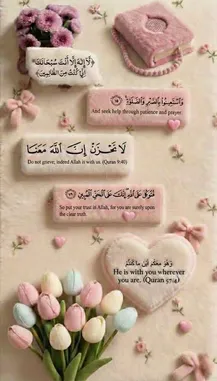 ﴿لَّا إِلَٰهَ إِلَّا أَنتَ سُبْحَانَكَ
إِنِّي كُنتُ مِنَ الظَّالِمِينَ﴾
وَاسْتَعِينُوا بِالصَّبْرِ وَالصَّلَاةِ
And seek help through patience and prayer
لَا تَحْزَنْ إِنَّ اللَّهَ مَعَنَا
Do not grieve; indeed Allah is with us. (Quran 9:40)
فَتَوَكَّلْ عَلَى اللَّهِ إِنَّكَ عَلَى الْحَقِّ الْمُبِينِ
So put your trust in Allah, for you are surely upon
the clear truth.
وَهُوَ مَعَكُمْ أَيْنَ مَا كُنتُمْ
He is with you wherever
you are. (Quran 57:4)